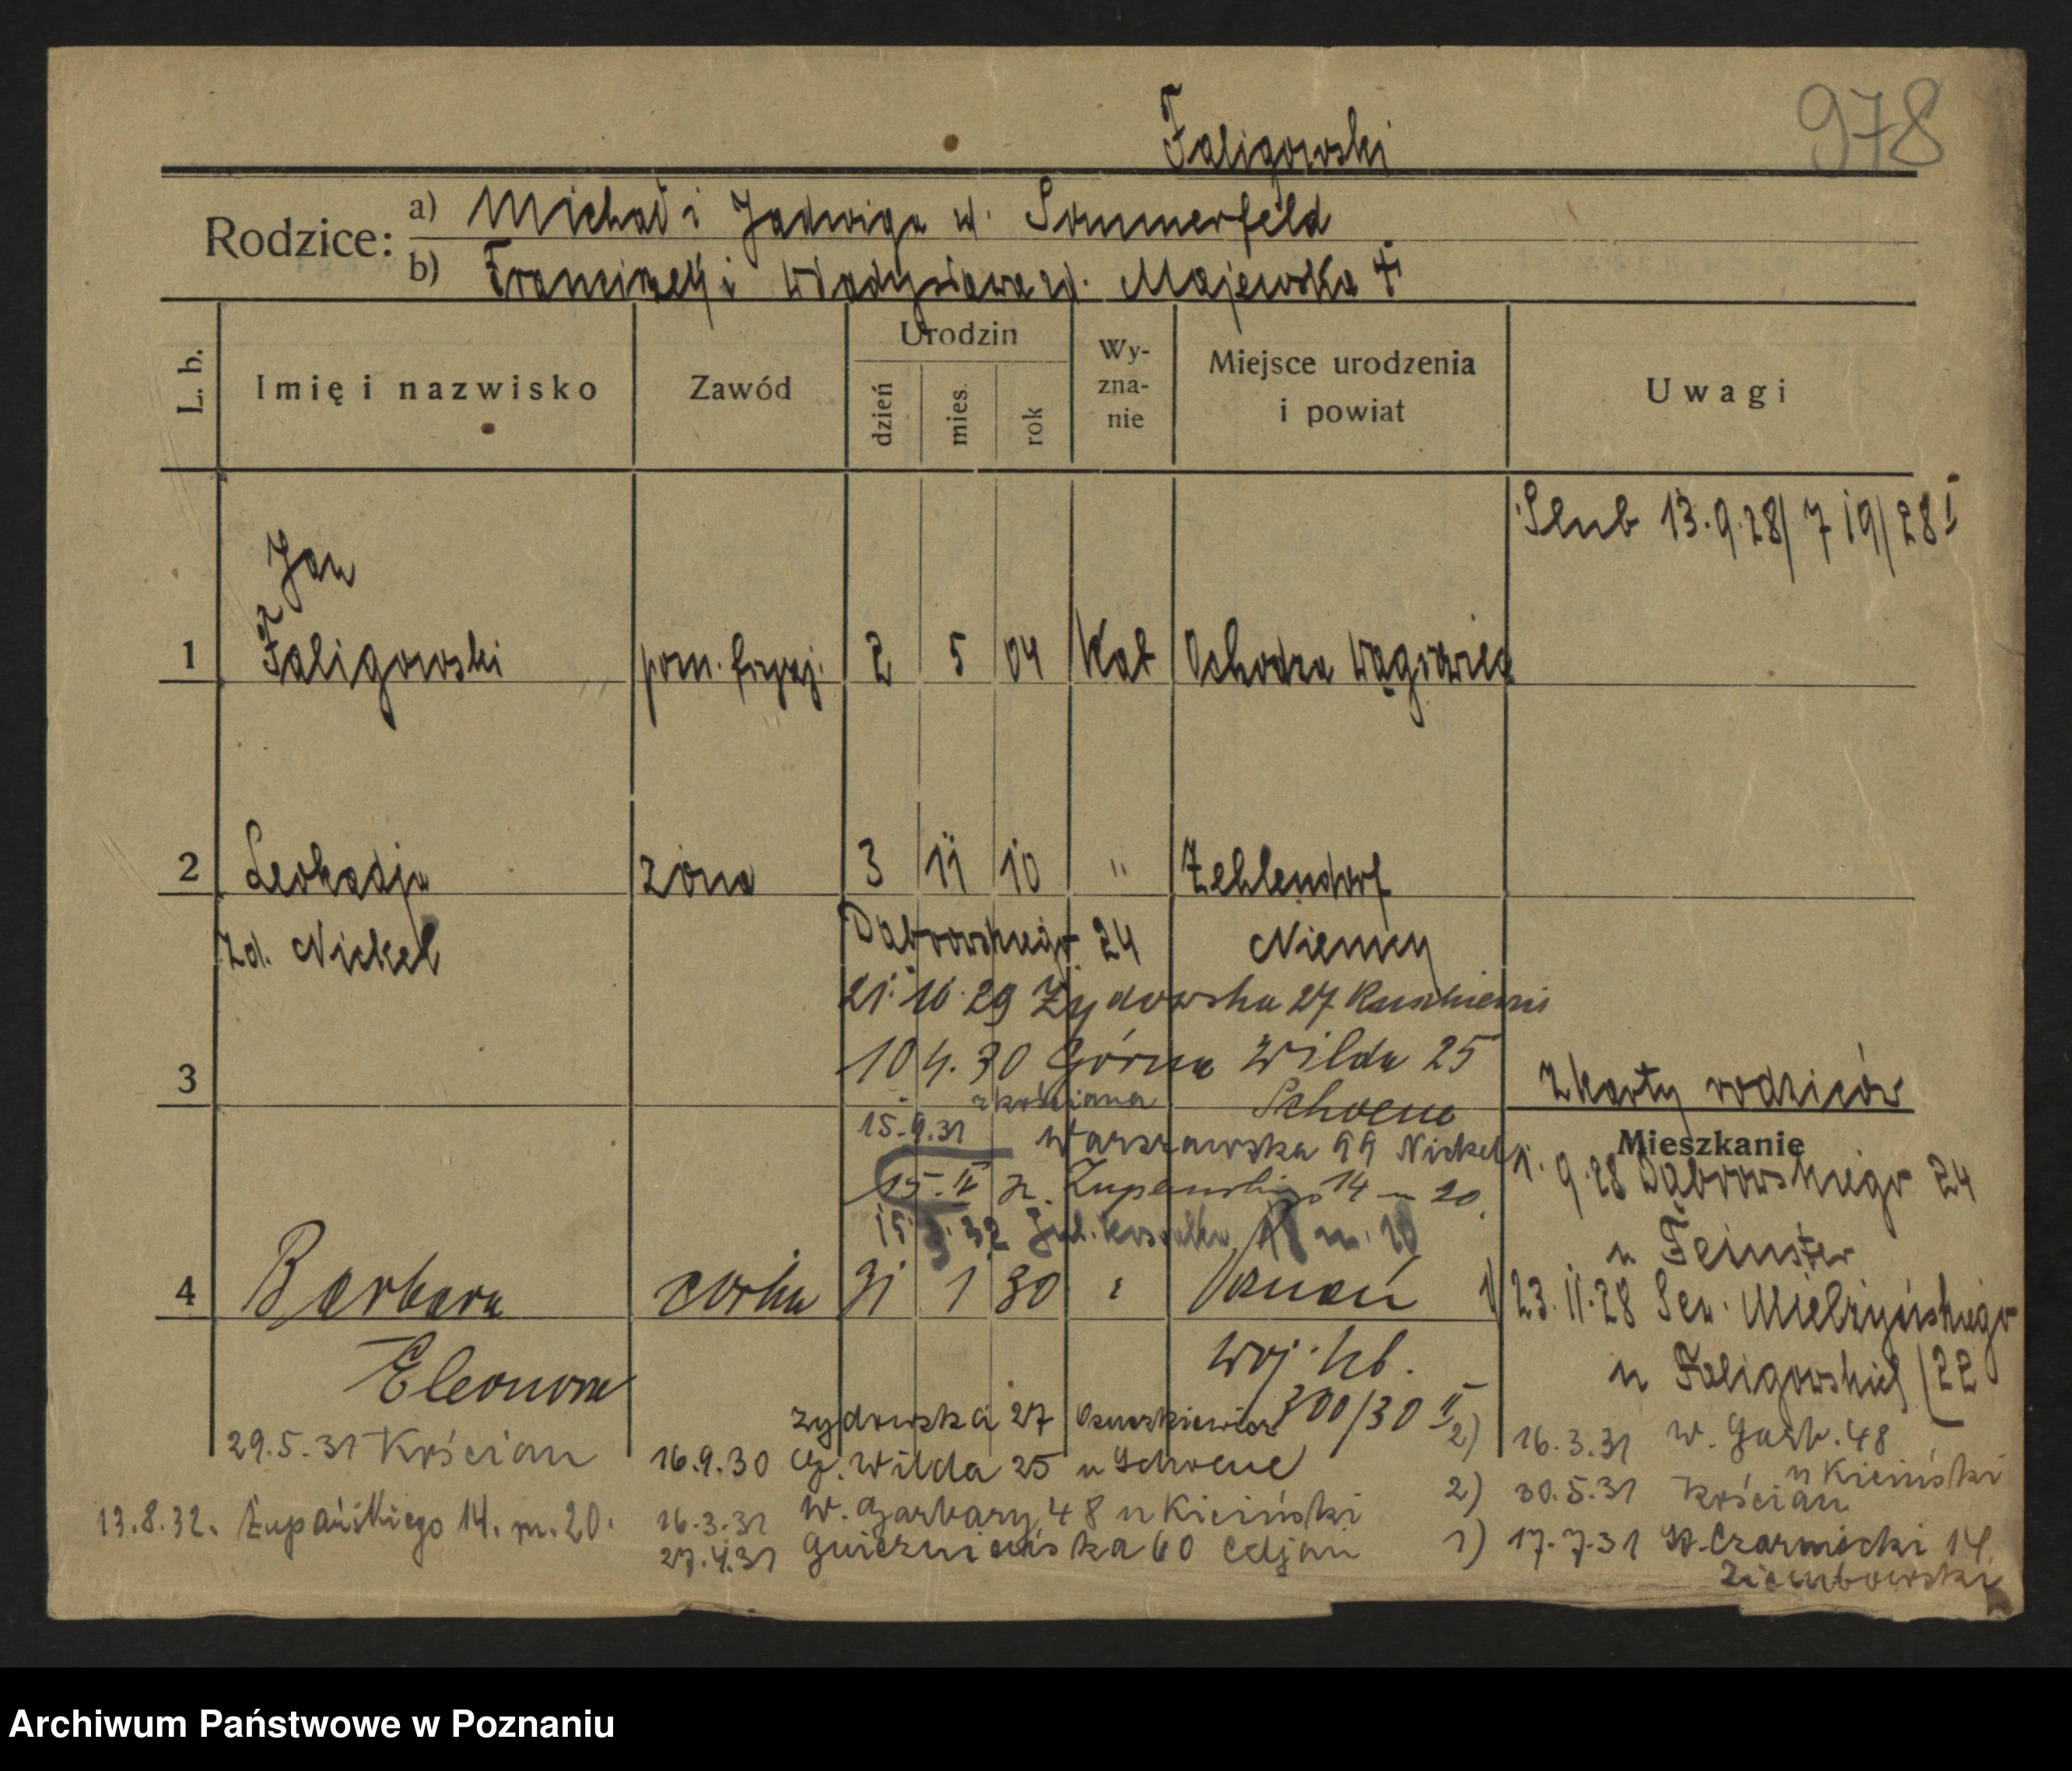 978
Faligowski
Rodzice:
a) Michał i Jadwiga w. Sommerfeld
b) Franciszek i Władysława zd. Majewska
L. b.
Imię i nazwisko
Zawód
Urodzin
dzień
mies.
rok
Wy-
zna-
nie
Miejsce urodzenia
i powiat
Uwagi
Ślub 13.9.28/719/28 I
Jan
1 Faligowski pom. fryzj. 2 5 04 Kat Ochodza Wągrowiec
2 Leokadja żona 3 11 10 " Zehlendorf
zd. Nickel
Dąbrowskiego 24
Niemcy
21.10.29 Żydowska 27
10 4.30 Górna Wilda 25
Schoene
3
z karty rodziców
z kościana
15.9.31 Warszawska 99 Nickel
Mieszkanie
1.9.28 Dąbrowskiego 24
15. II Żupańskiego 14 m 20.
u Feinster
15. 32 m. 10
4 Barbara córka 31 1 30 Poznań
1) 23.11.28 Sew. Mielżyńskiego
Eleonora
woj. hb.
300/30 II
u Faligowskich (22
żydowska 27
29.5.31 Kościan
16.9.30 G. Wilda 25 u Schoene
2) 16.3.31 W. Garb. 48
u Kiciński
16.3.31 W. Garbary 48 u Kiciński
2) 30.5.31 Kościan
13.8.32. Żupańskiego 14. m. 20.
27.4.31 Gnieźnieńska 60
1) 17.7.31 Czarnecki 14
Ziembowski
Archiwum Państwowe w Poznaniu